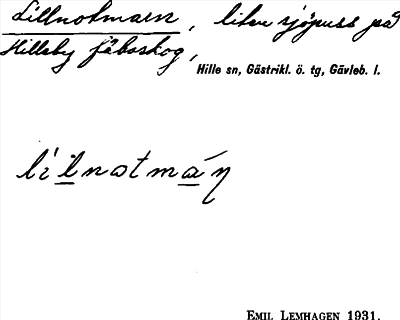 Lillnotmaren, liten sjöpuss på
Hilleby fäboskog,
Hille sn, Gästrikl. ö. tg, Gävleb. l.
EMIL LEMHAGEN 1931.